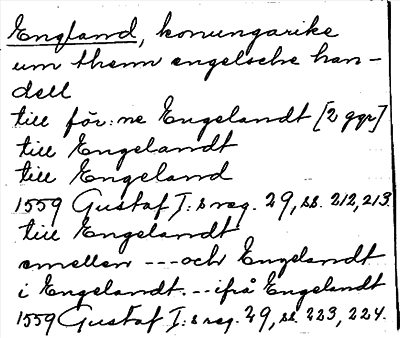 England, konungarike
um thenn engelsche han-
dell
till för:ne Engelandt [2 ggr]
till Engelandt
till Engeland
1559 Gustaf I:s reg. 29, ss. 212, 213.
till Engelandt
emellen --- och Engelandt
i Engelandt. -- ifrå Engelandt
1559 Gustaf I:s reg. 29, ss. 223, 224.